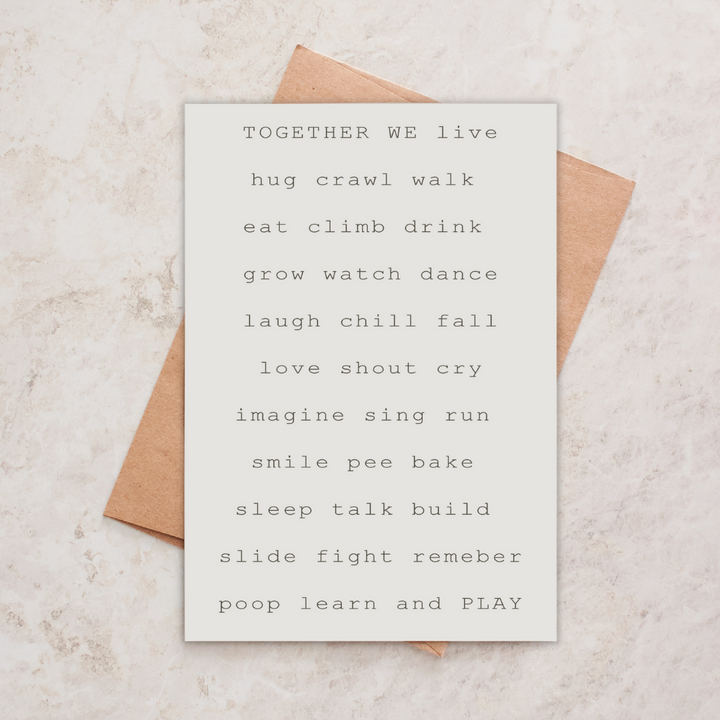 TOGETHER WE live
hug crawl walk
eat climb drink
grow watch dance
laugh chill fall
love shout cry
imagine sing run
smile pee bake
sleep talk build
slide fight remeber
poop learn and PLAY